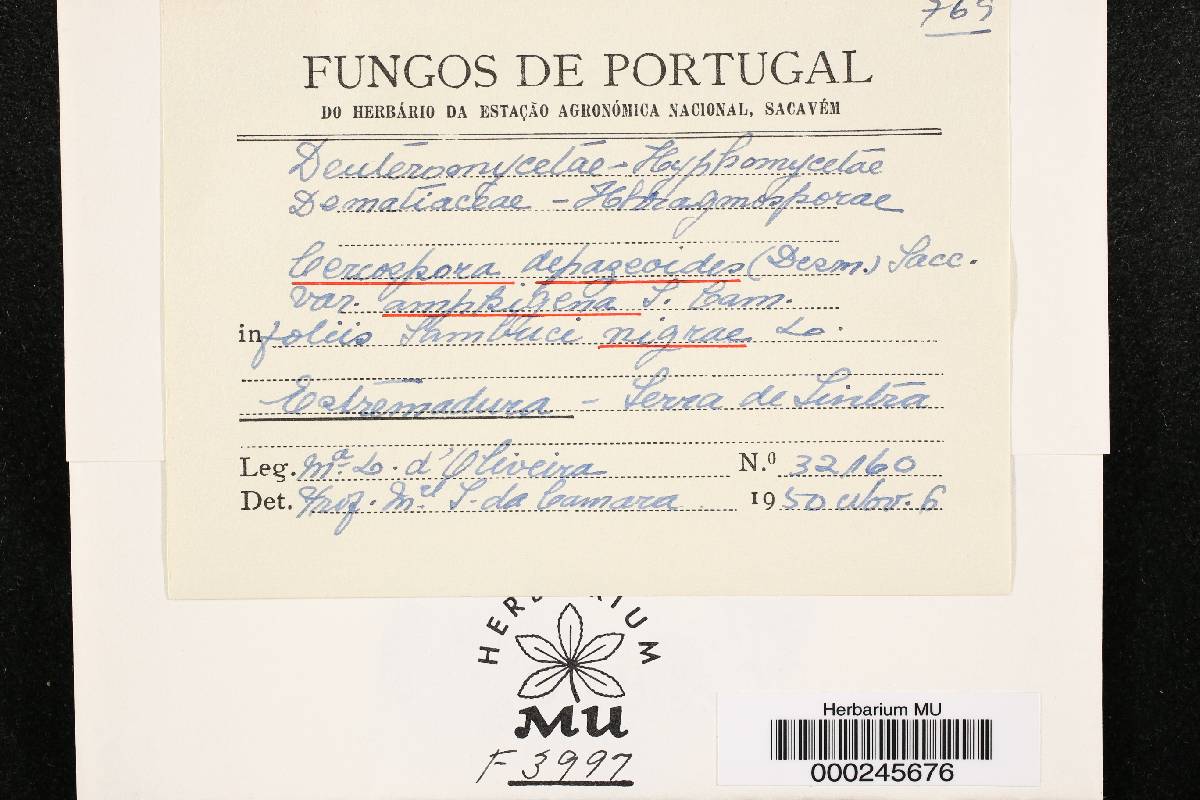 769
FUNGOS DE PORTUGAL
DO HERBÁRIO DA ESTAÇÃO AGRONÓMICA NACIONAL, SACAVÉM
Deuteromycetae - Hyphomycetae
Dematiaceae -
Cercospora depazeoides (Desm.) Sacc.
var. amphigena S. Cam.
in foliis Sambuci nigrae L.
Estremadura - Serra de Sintra
Leg. Mª. L. d'Oliveira N.º 32160
Det. Prof. Mel. S. da Camara 1950 Nov. 6
HERBARIUM
MU
F 3997
Herbarium MU
000245676